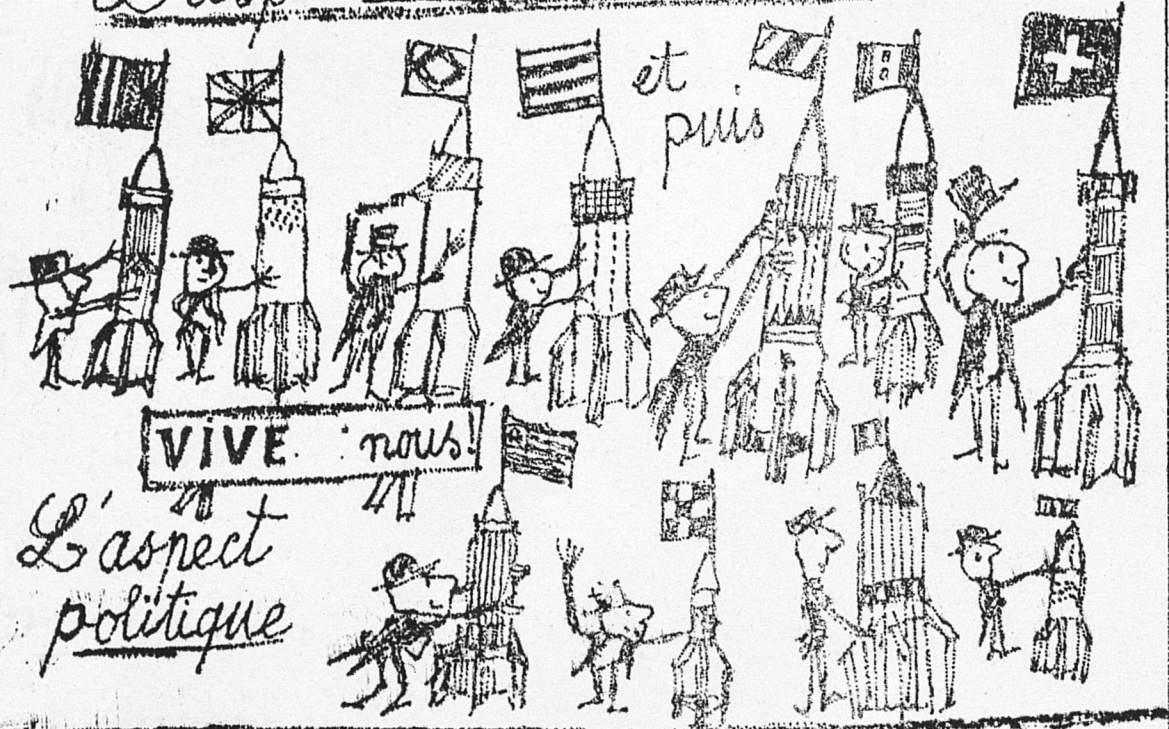 et
puis
VIVE nous!
L'aspect
politique